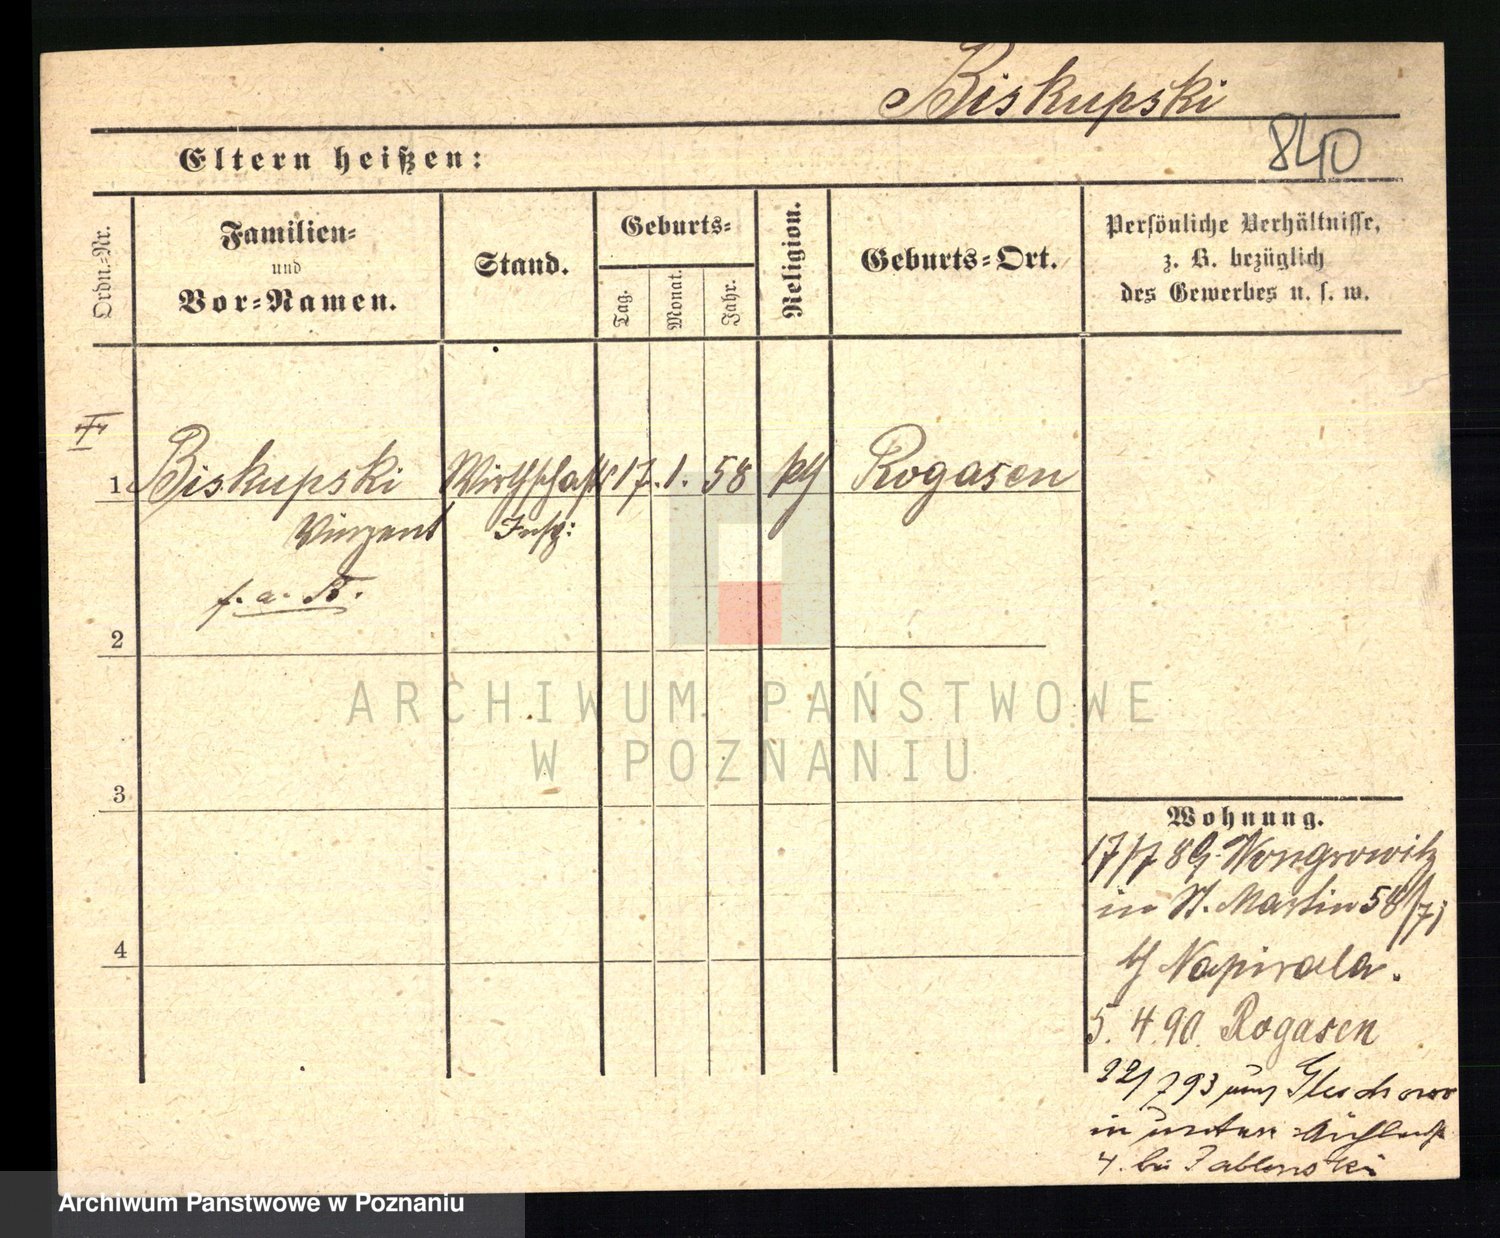 Biskupski
840
Eltern heißen:
Ordn.-Nr.
Familien-
und
Vor-Namen.
Stand.
Geburts-
Tag.
Monat.
Jahr.
Religion.
Geburts-Ort.
Persönliche Verhältnisse,
z. B. bezüglich
des Gewerbes u. s. w.
1 Biskupski Wirthschafts 17. 1. 58 kth Rogasen
Vinzent Insp:
f. a. B.
2
3
4
ARCHIWUM PAŃSTWOWE
W POZNANIU
Wohnung.
17/7 89 Wongrowitz
in St. Martin 58/7;
b/ Napirala.
5. 4. 90. Rogasen
22/7 93
in unten
4. bei Jablonski
Archiwum Państwowe w Poznaniu